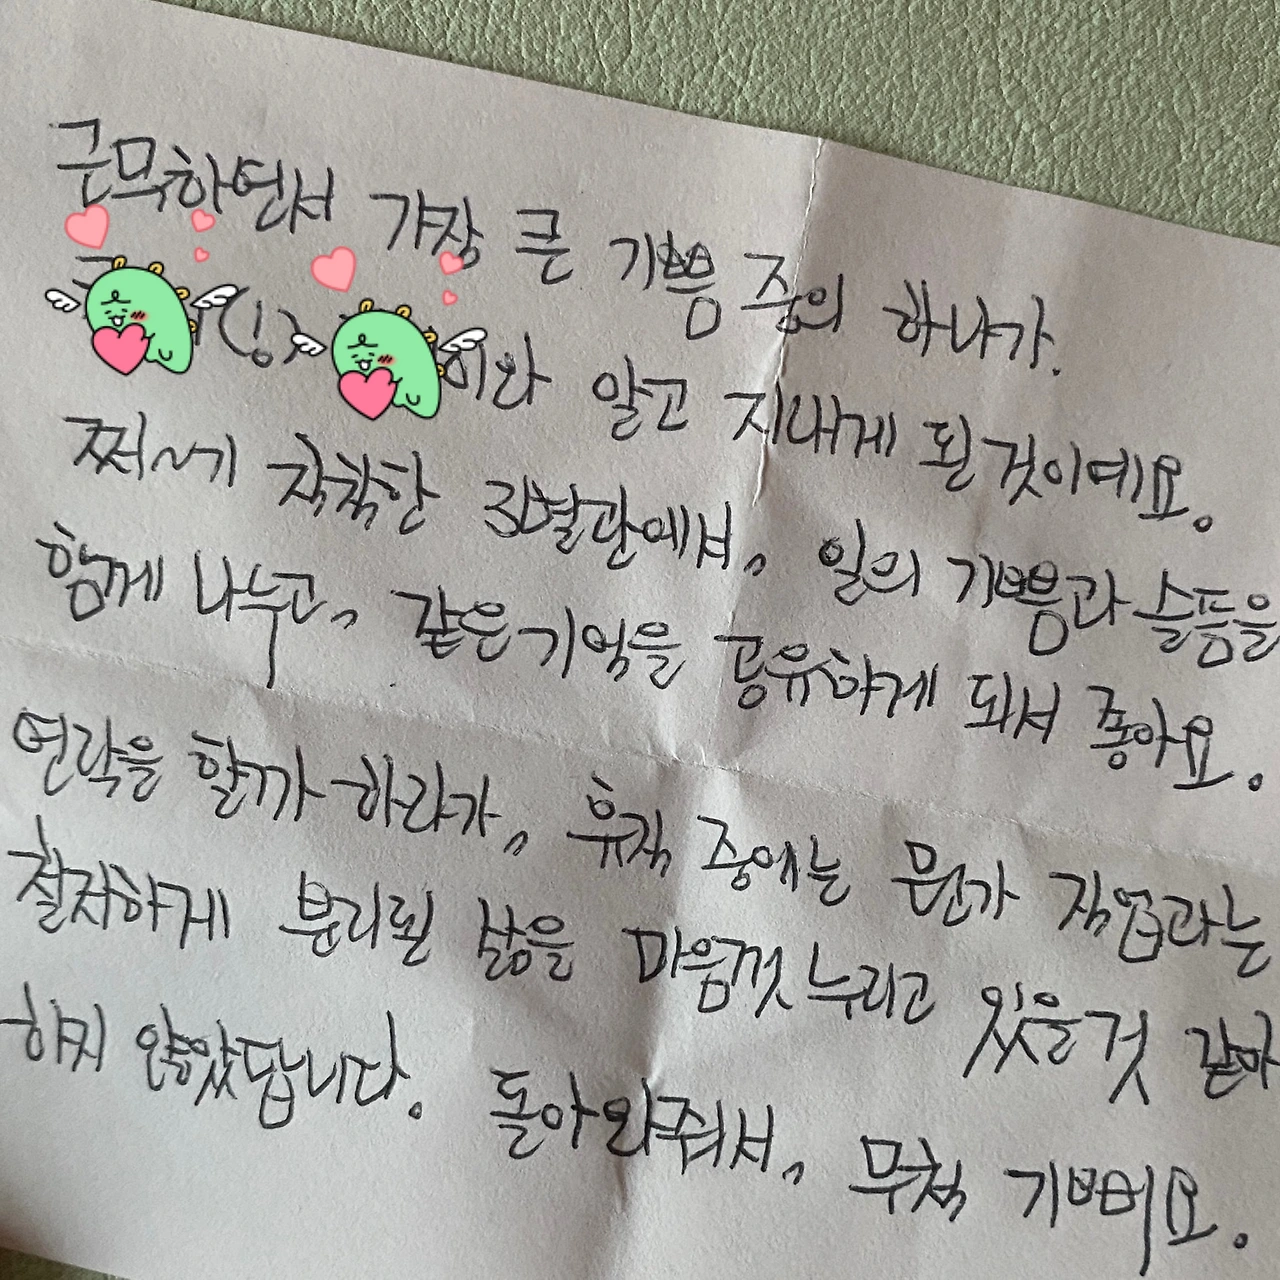 근무하면서 가장 큰 기쁨 중의 하나가.
(!) 이와 알고 지내게 된 것이예요.
쩌~기 착착한 검열관에서, 일의 기쁨과 슬픔을
함께 나누고, 같은 기억을 공유하게 되서 좋아요.
연락을 할까 하다가, 휴직 중에는 뭔가 직업과는
철저하게 분리된 삶을 마음껏 누리고 있을 것 같아
하지 않았답니다. 돌아와줘서, 무척 기뻐요.